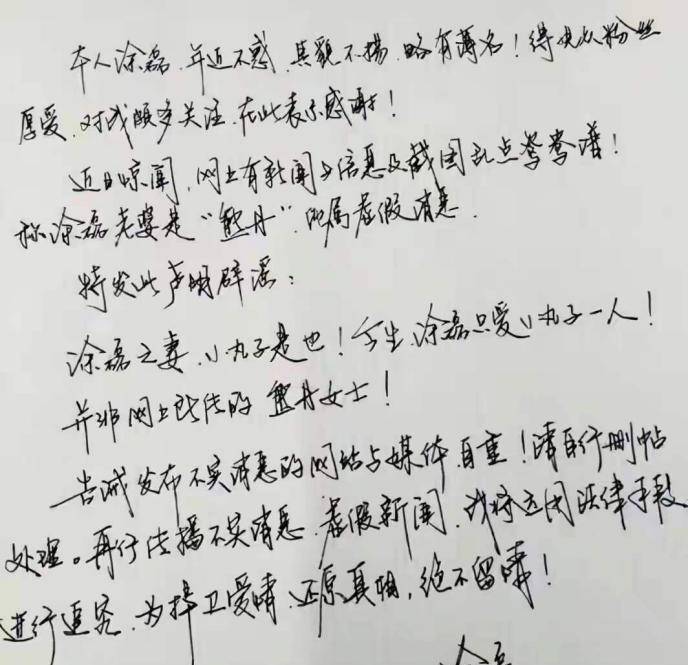 本人涂磊、年近不惑、其貌不扬、略有薄名！得此众粉丝
厚爱、对我颇多关注、在此表示感谢！
近日惊闻、网上有新闻与信息及截图乱点鸳鸯谱！
称涂磊老婆是“熊丹”、此属虚假消息、
特发此声明辟谣：
涂磊之妻、小丸子是也！今生、涂磊只爱小丸子一人！
并非网上所传的 熊丹女士！
告诫发布不实消息的网站与媒体、自重！请自行删帖
处理。再行传播不实消息、虚假新闻、我将运用法律手段
进行追究、为捍卫爱情、还原真相，绝不留情！
涂磊